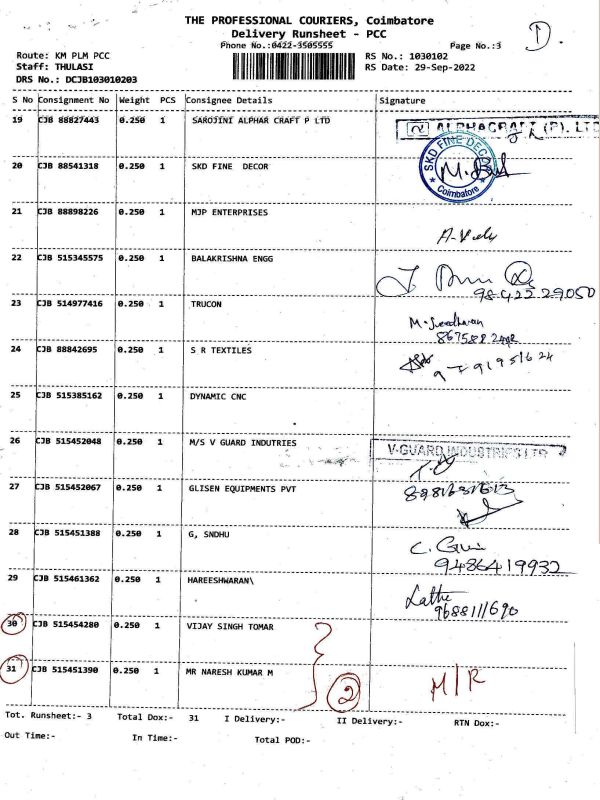 THE PROFESSIONAL COURIERS, Coimbatore
Delivery Runsheet - PCC
Phone No.:0422-3505555
Page No.:3
Route: KM PLM PCC
RS No.: 1030102
Staff: THULASI
RS Date: 29-Sep-2022
DRS No.: DCJB103010203
S No Consignment No Weight PCS Consignee Details Signature
19 CJB 88827443 0.250 1 SAROJINI ALPHAR CRAFT P LTD
ALPHACRAFT (P). LTD
20 CJB 88541318 0.250 1 SKD FINE DECOR
SKD FINE DECOR
Coimbatore
21 CJB 88898226 0.250 1 MJP ENTERPRISES
22 CJB 515345575 0.250 1 BALAKRISHNA ENGG
98422 29050
23 CJB 514977416 0.250 1 TRUCON
24 CJB 88842695 0.250 1 S R TEXTILES
25 CJB 515385162 0.250 1 DYNAMIC CNC
26 CJB 515452048 0.250 1 M/S V GUARD INDUTRIES
V-GUARD INDUSTRIES LTD
27 CJB 515452067 0.250 1 GLISEN EQUIPMENTS PVT
28 CJB 515451388 0.250 1 G, SNDHU
9486419932
29 CJB 515461362 0.250 1 HAREESHWARAN\
30 CJB 515454280 0.250 1 VIJAY SINGH TOMAR
31 CJB 515451390 0.250 1 MR NARESH KUMAR M
2
M/R
Tot. Runsheet:- 3 Total Dox:- 31 I Delivery:- II Delivery:- RTN Dox:-
Out Time:- In Time:- Total POD:-